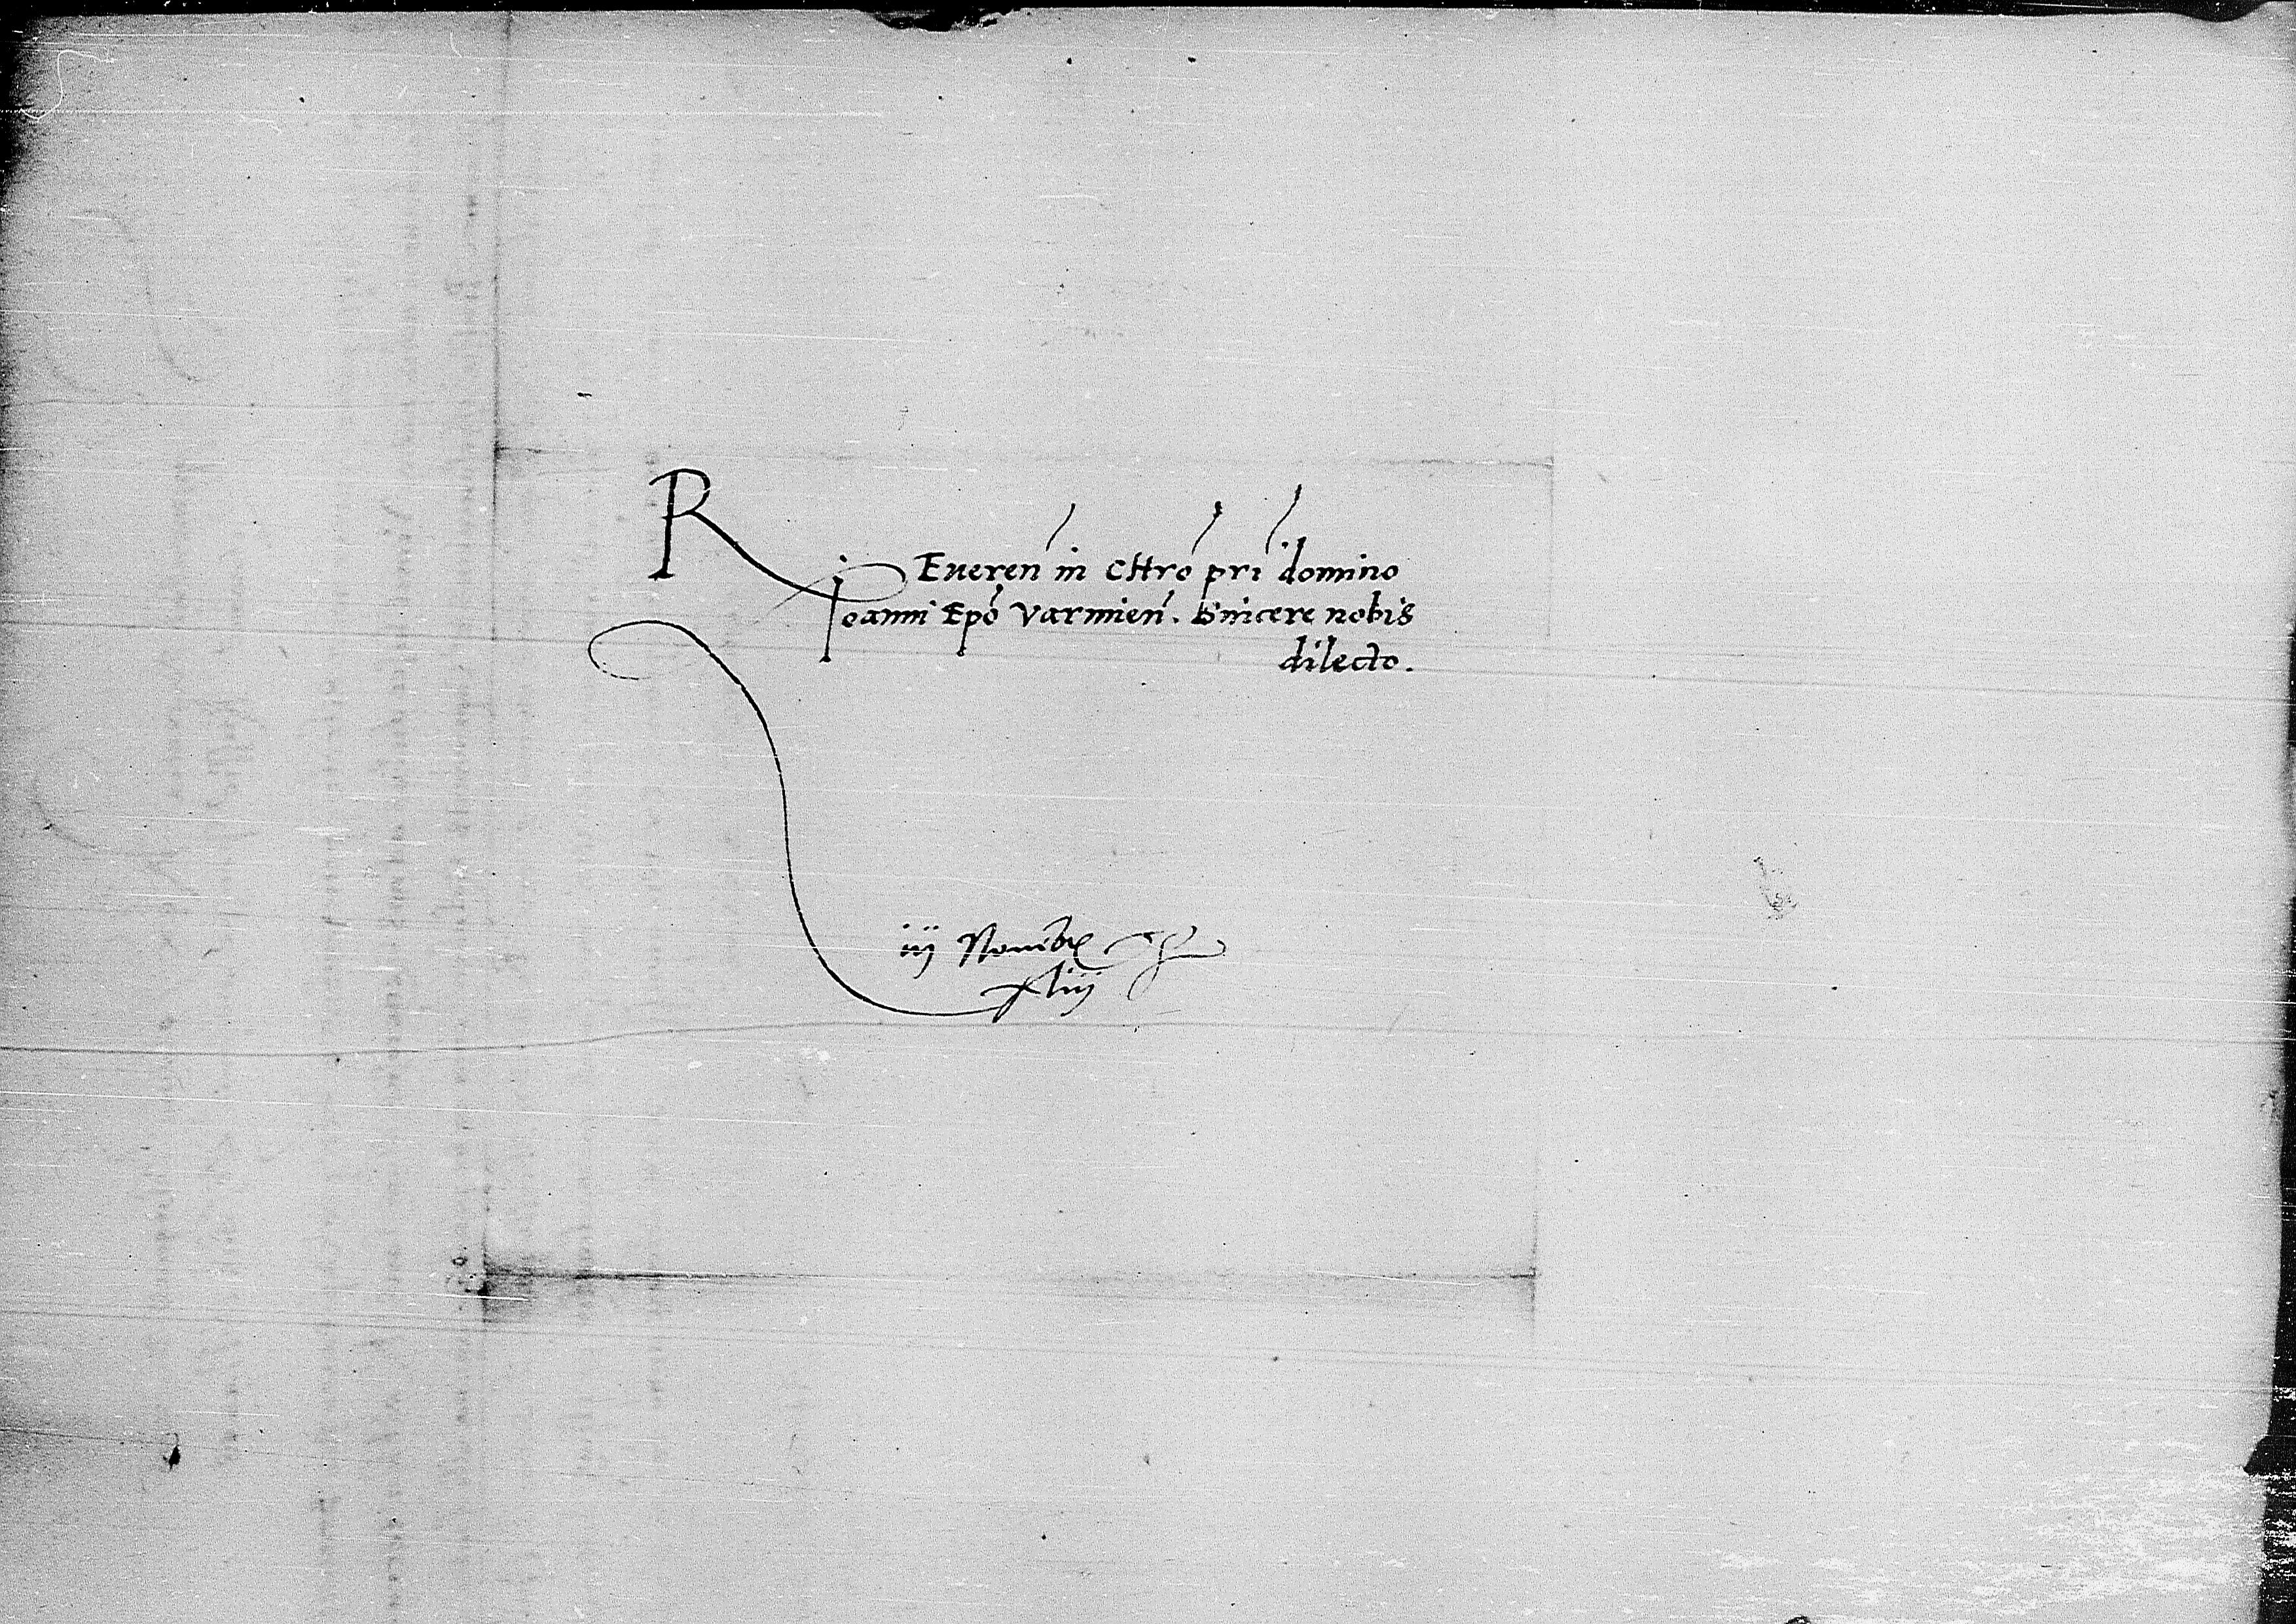 REueren in Chro pri domino
Ioanni Epo Varmien. Sincere nobis
dilecto.
iij Nouẽbr
xliij